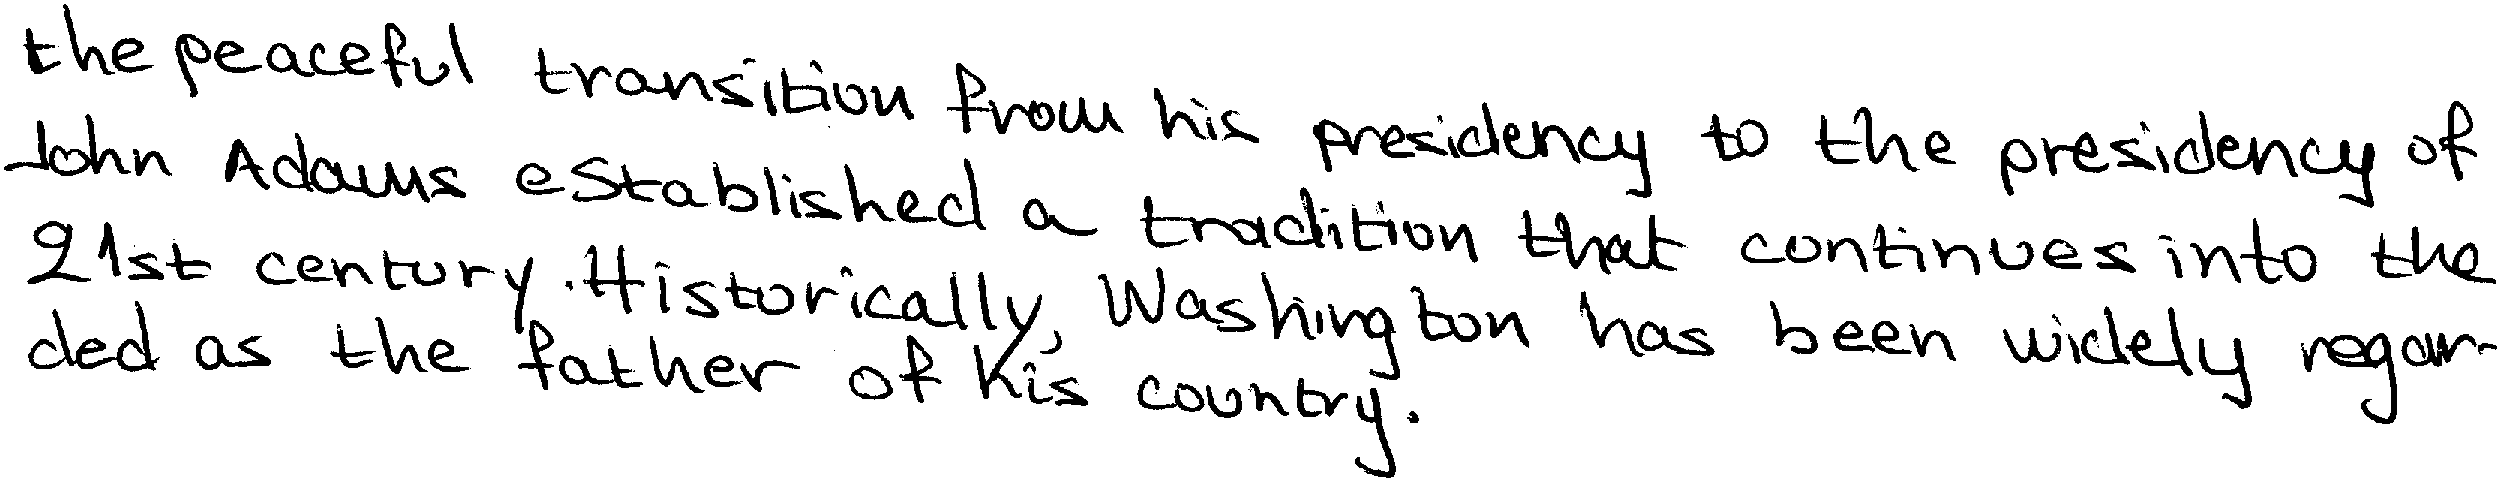 the peaceful transition from his presidency to the presidency of
John Adams established a tradition that continues into the
21st century. Historically, Washington has been widely regar-
ded as the father of his country.